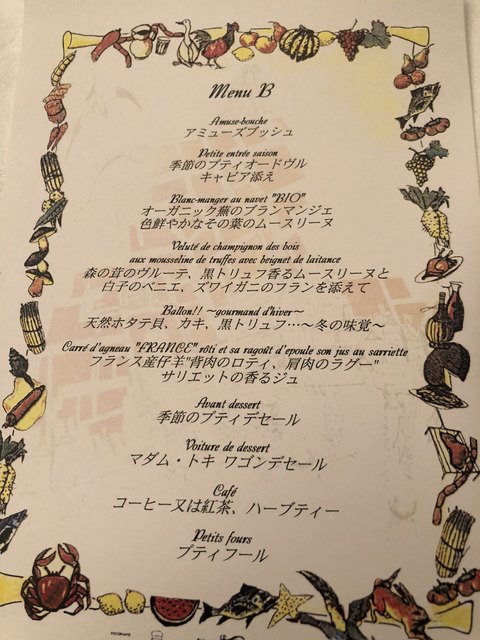 Menu B
Amuse-bouche
アミューズブッシュ
Petite entrée saison
季節のプティオードヴル
キャビア添え
Blanc-manger au navet "BIO"
オーガニック蕪のブランマンジェ
色鮮やかなその葉のムースリーヌ
Veluté de champignon des bois
aux mousseline de truffes avec beignet de laitance
森の茸のヴルーテ、黒トリュフ香るムースリーヌと
白子のベニエ、ズワイガニのフランを添えて
Ballon!! ～gourmand d'hiver～
天然ホタテ貝、カキ、黒トリュフ…～冬の味覚～
Carré d'agneau "FRANCE" rôti et sa ragoût d'epoule son jus au sarriette
フランス産仔羊"背肉のロティ、肩肉のラグー"
サリエットの香るジュ
Avant dessert
季節のプティデセール
Voiture de dessert
マダム・トキ ワゴンデセール
Café
コーヒー又は紅茶、ハーブティー
Petits fours
プティフール